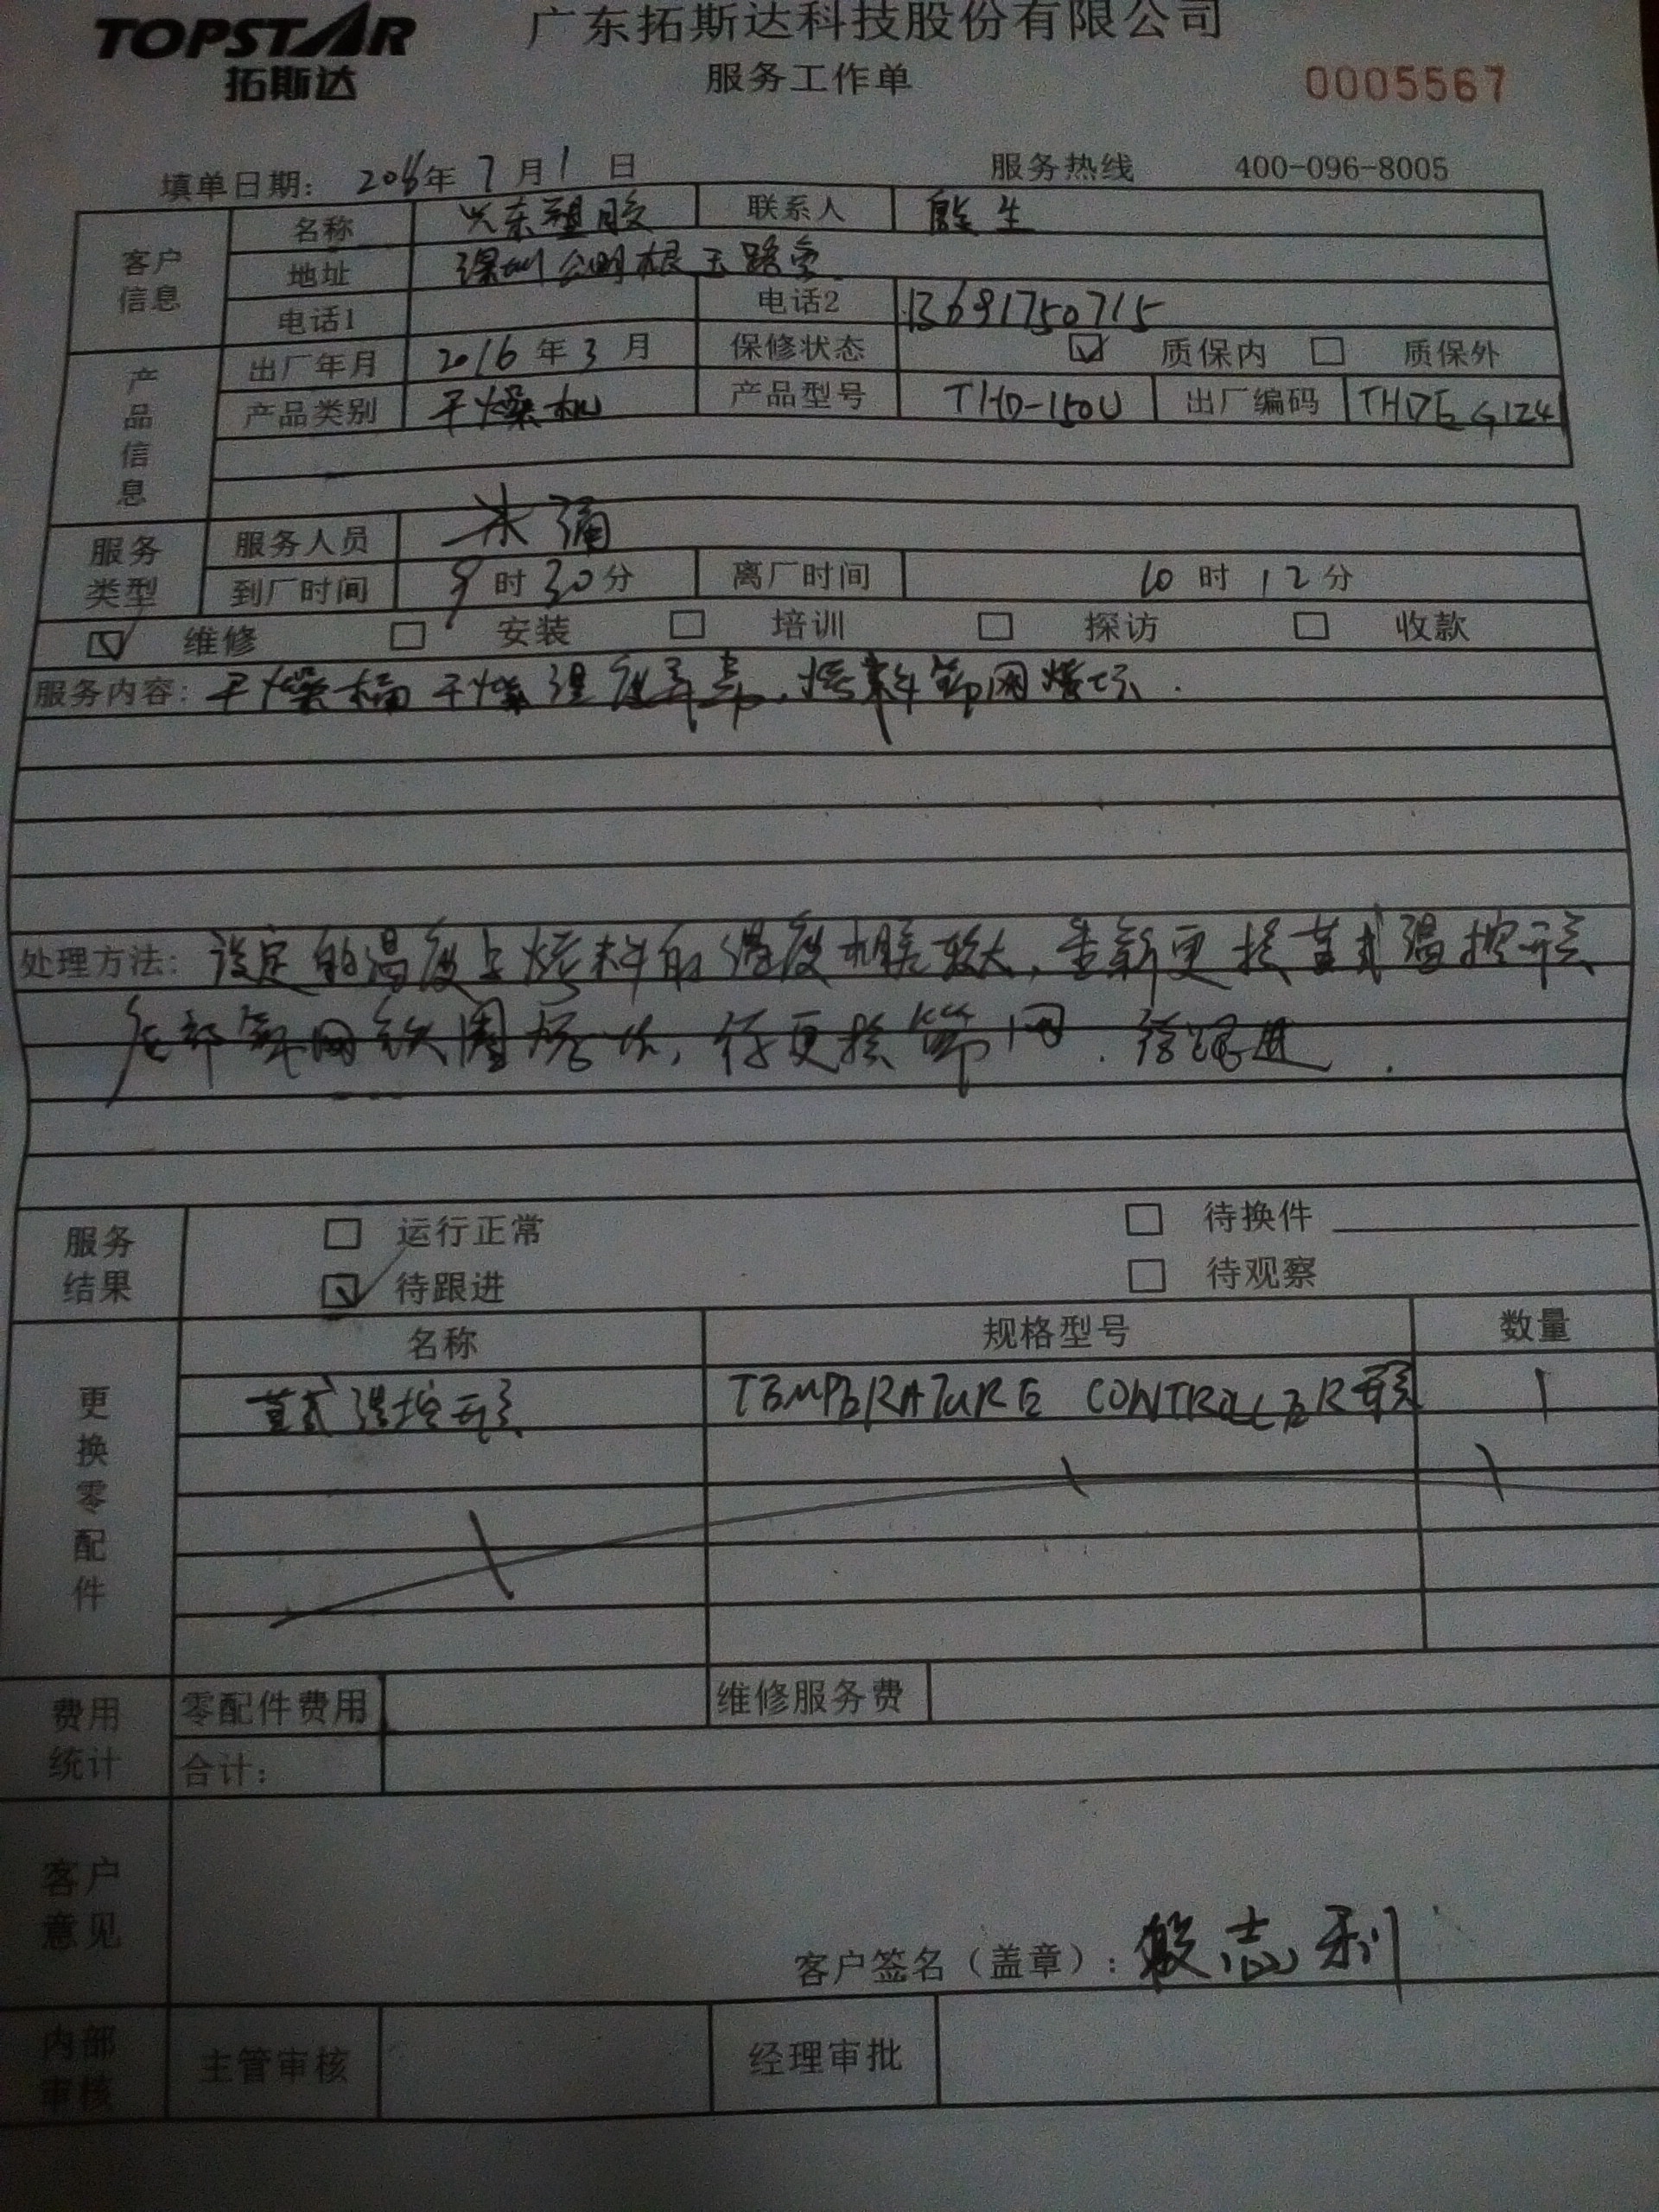 TOPSTAR
拓斯达
广东拓斯达科技股份有限公司
服务工作单
0005567
填单日期: 2016年 7月1日
服务热线 400-096-8005
客户信息
名称 兴东塑胶 联系人 熊生
地址 深圳公明根玉路
电话1 电话2 13691750715
产品信息
出厂年月 2016年3月 保修状态 质保内 质保外
产品类别 干燥机 产品型号 THD-150U 出厂编码 THDEG1241
服务类型
服务人员
到厂时间 9时30分 离厂时间 10时12分
维修 安装 培训 探访 收款
服务内容: 干燥桶干燥温度异常,烤料筛网烧坏.
处理方法: 设定的温度与烤料的温度相差较大,重新更换直式温控
底部筛网铁圈 ,待更换筛网.待跟进.
服务结果
运行正常 待换件
待跟进 待观察
更换零配件
名称 规格型号 数量
直式温控 TEMPERATURE CONTROLLER 1
费用统计
零配件费用 维修服务费
合计:
客户意见
客户签名(盖章): 殷志利
内部审核
主管审核 经理审批